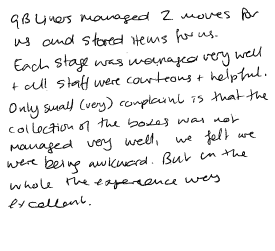 GB Liners managed 2 moves for
us and stored items for us.
Each stage was managed very well
+ all staff were courteous + helpful.
Only small (very) complaint is that the
collection of the boxes was not
managed very well, we felt we
were being awkward. But on the
whole the experience was
excellent.